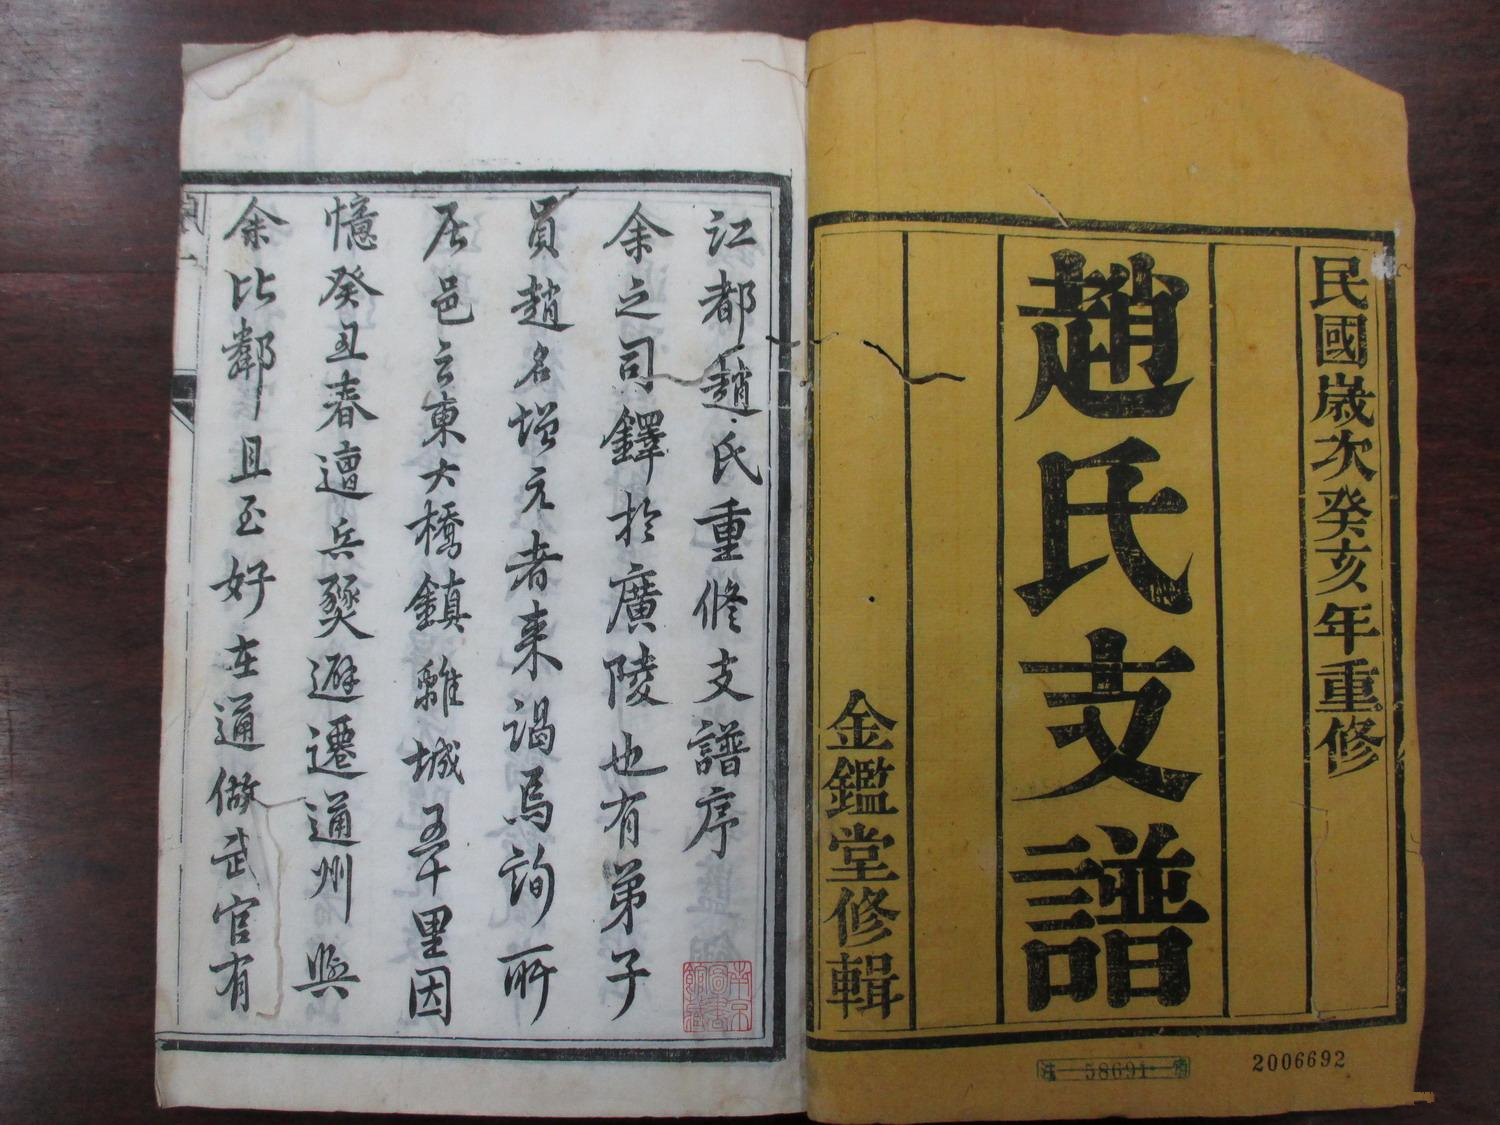 民國歲次癸亥年重修
趙氏支譜
金鑑堂修輯
2006692
58691
江都趙氏重修支譜序
余之司鐸於廣陵也有弟子
員趙名增元者来謁焉詢所
居邑之東大橋鎮離城五十里因
憶癸丑春遭兵燹避遷通州與
余比鄰且至好在通做武官有
南京圖書館藏